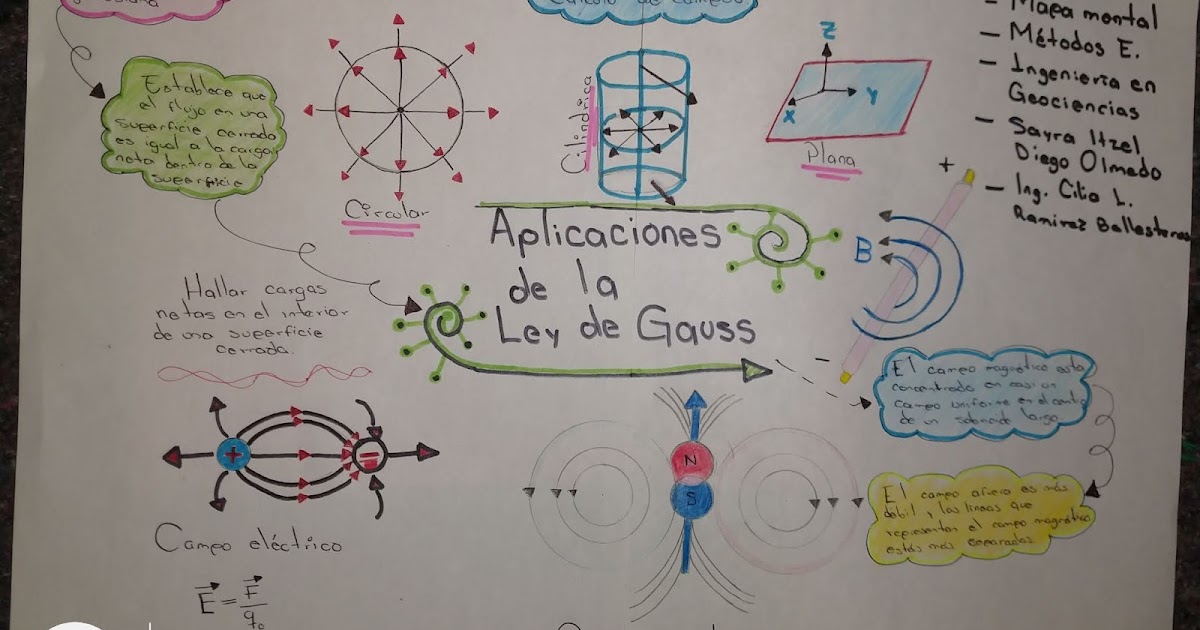 Mapa mental
- Métodos E.
- Ingeniería en
Geociencias
- Sayra Itzel
Diego Olmedo
- Ing. Cilia L.
Ramirez Ballesteros
Establece que
el flujo en una
superficie cerrada
es igual a la carga
neta dentro de la
superficie
Circular
Cilíndrica
Z
X
Y
Plana
Aplicaciones
de la
Ley de Gauss
Hallar cargas
netas en el interior
de una superficie
cerrada.
+
B
-
El campo magnético esta
concentrado en casi un
campo uniforme en el centro
de un solenoide largo
El campo afuera es más
débil, las lineas que
representan el campo magnético
están más separadas
+
-
Campo eléctrico
E = F
q₀
N
S